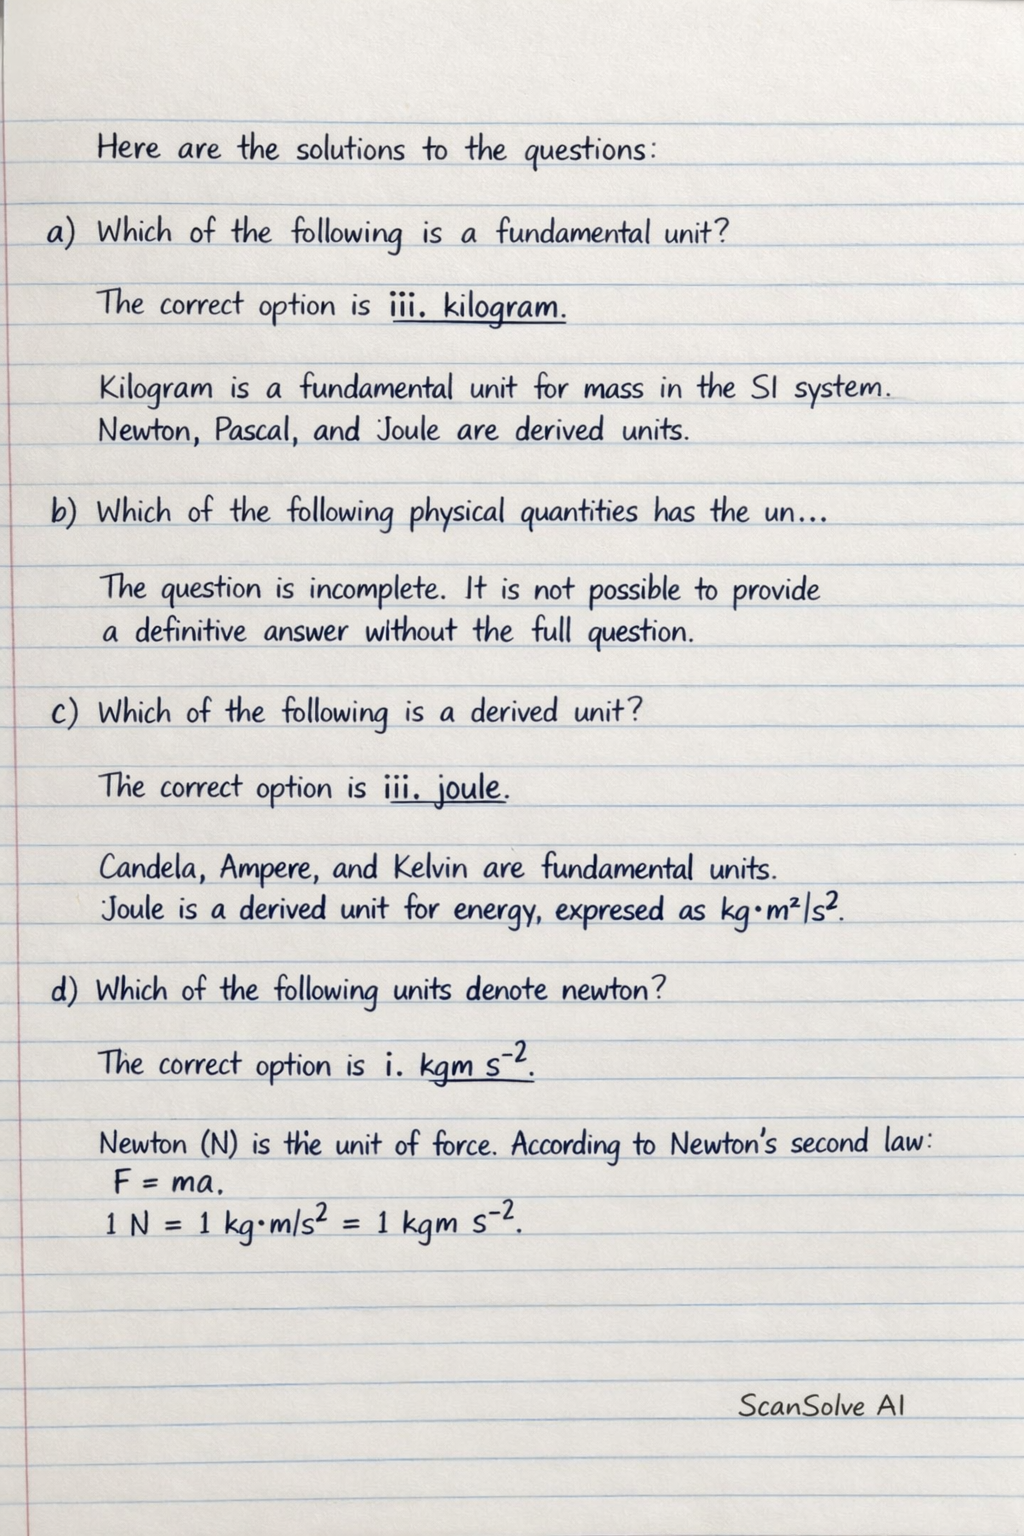 Here are the solutions to the questions:
a) Which of the following is a fundamental unit?
The correct option is iii. kilogram.
Kilogram is a fundamental unit for mass in the SI system.
Newton, Pascal, and Joule are derived units.
b) Which of the following physical quantities has the un...
The question is incomplete. It is not possible to provide
a definitive answer without the full question.
c) Which of the following is a derived unit?
The correct option is iii. joule.
Candela, Ampere, and Kelvin are fundamental units.
Joule is a derived unit for energy, expresed as kg·m²/s².
d) Which of the following units denote newton?
The correct option is i. kgm s⁻².
Newton (N) is the unit of force. According to Newton's second law:
F = ma.
1 N = 1 kg·m/s² = 1 kgm s⁻².
ScanSolve AI